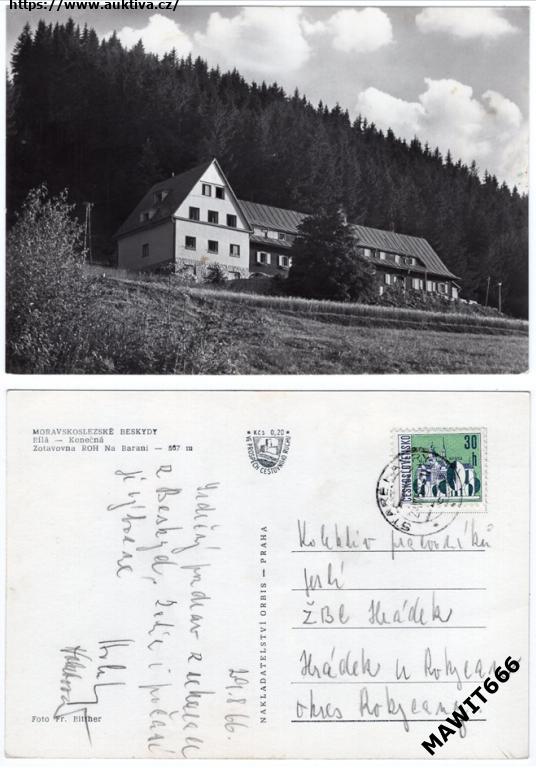 https://www.auktiva.cz/
MORAVSKOSLEZSKÉ BESKYDY
Bílá — Konečná
Zotavovna ROH Na Baraní — 567 m
Kčs 0,20
VE PROSPĚCH CESTOVNÍHO RUCHU
ČESKOSLOVENSKO
30
h
Srdečný pozdrav z
z Beskyd, i počasí
je výborné
29.8.66.
NAKLADATELSTVÍ ORBIS — PRAHA
Kolektiv
ŽBC Hrádek
Hrádek u Rokycan
okres Rokycany
Foto Fr. Bittner
MAWIT666